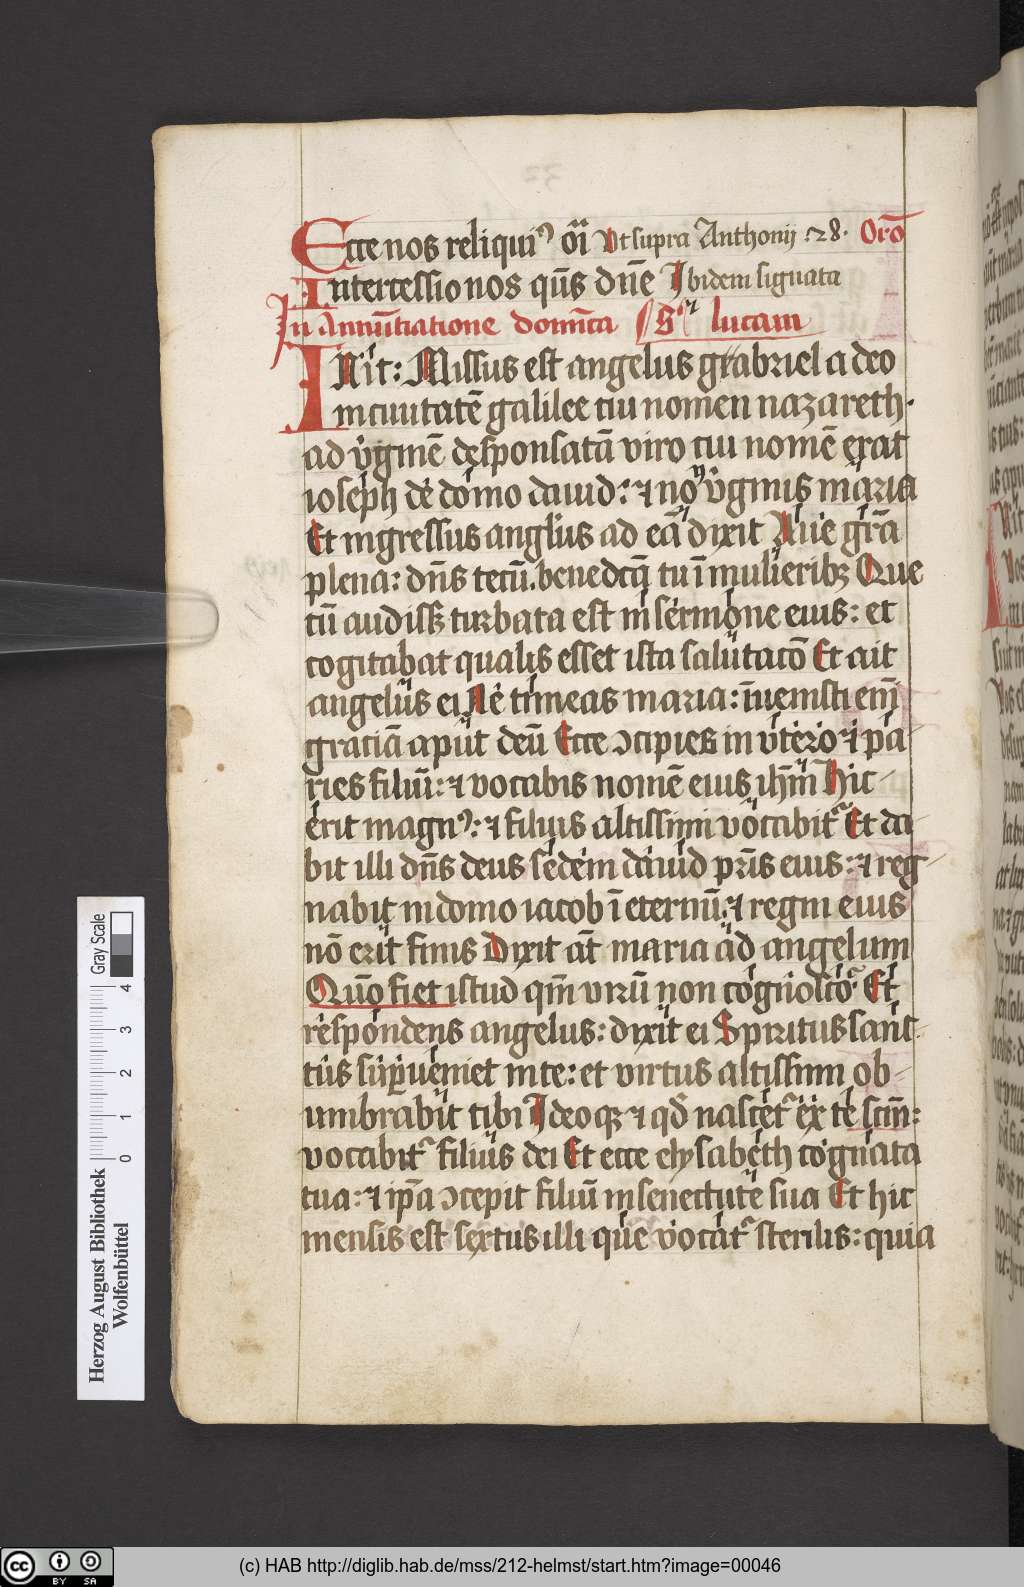 Ecce nos reliquiꝰ oı̄ Vt supra Anthonij .28. Oro̅
Intercessio nos qu̅s dn̅e Ibidem signata
In Annu̅tiatione domi̅ca Sꝫ lucam
IN it: Missus est angelus gabriel a deo
in ciuitate̅ galilee cui nomen nazareth.
ad v̅gine̅ desponsata̅ viro cui nome̅ erat
ioseph de domo dauid: ⁊ no̅ v̅ginis maria
Et ingressus angl̅us ad ea̅ dixit Aue gr̅a
plena: dn̅s tecu̅. benedcā̅ tu i̅ mulieribꝫ Que
cu̅ audissꝫ turbata est in sermone eius: et
cogitabat qualis esset ista salutaco̅ Et ait
angelus ei Ne timeas maria: i̅uenisti eni̅
gracia̅ aput deu̅ Ecce ↄcipies in vtero ⁊ pa-
ries filiu̅: ⁊ vocabis nome̅ eius ih̅m Hic
erit magnꝰ: ⁊ filius altissimi vocabit᷑ Et da-
bit illi dn̅s deus sedem dauid pr̅is eius: ⁊ reg-
nabit in domo iacob i̅ eternu̅: ⁊ regni eius
no̅ erit finis Dixit at̅ maria ad angelum
Quo̅ fiet istud qm̅ viru̅ non cognosco Et
respondens angelus: dixit ei Spiritus sanc-
tus sup̲ueniet in te: et virtus altissimi ob-
umbrabit tibi Ideoqꝫ ⁊ qd̅ nascet᷑ ex te scm̅:
vocabit᷑ filius dei Et ecce elysabeth cognata
tua: ⁊ ip̅a ↄcepit filiu̅ in senectute sua Et hic
mensis est sextus illi que vocat᷑ sterilis: quia
Herzog August Bibliothek
Wolfenbüttel
0 1 2 3 4
Gray Scale
(c) HAB http://diglib.hab.de/mss/212-helmst/start.htm?image=00046
cc BY SA